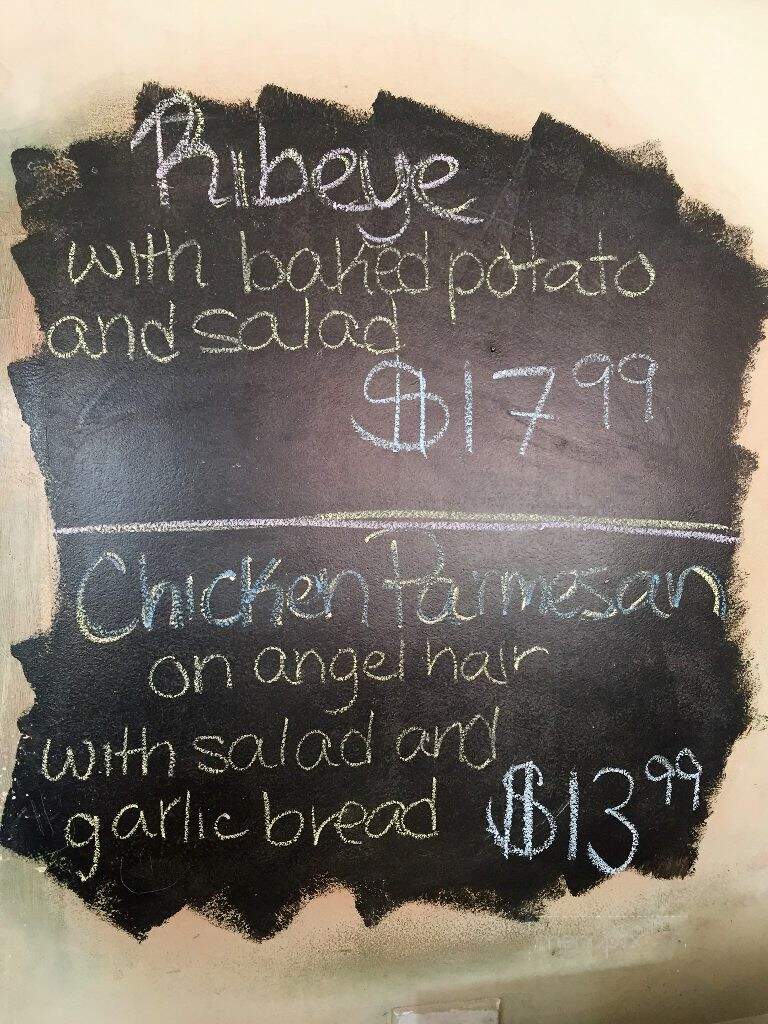 Ribeye
with baked potato
and salad
$17.99
Chicken Parmesan
on angel hair
with salad and
garlic bread $13.99